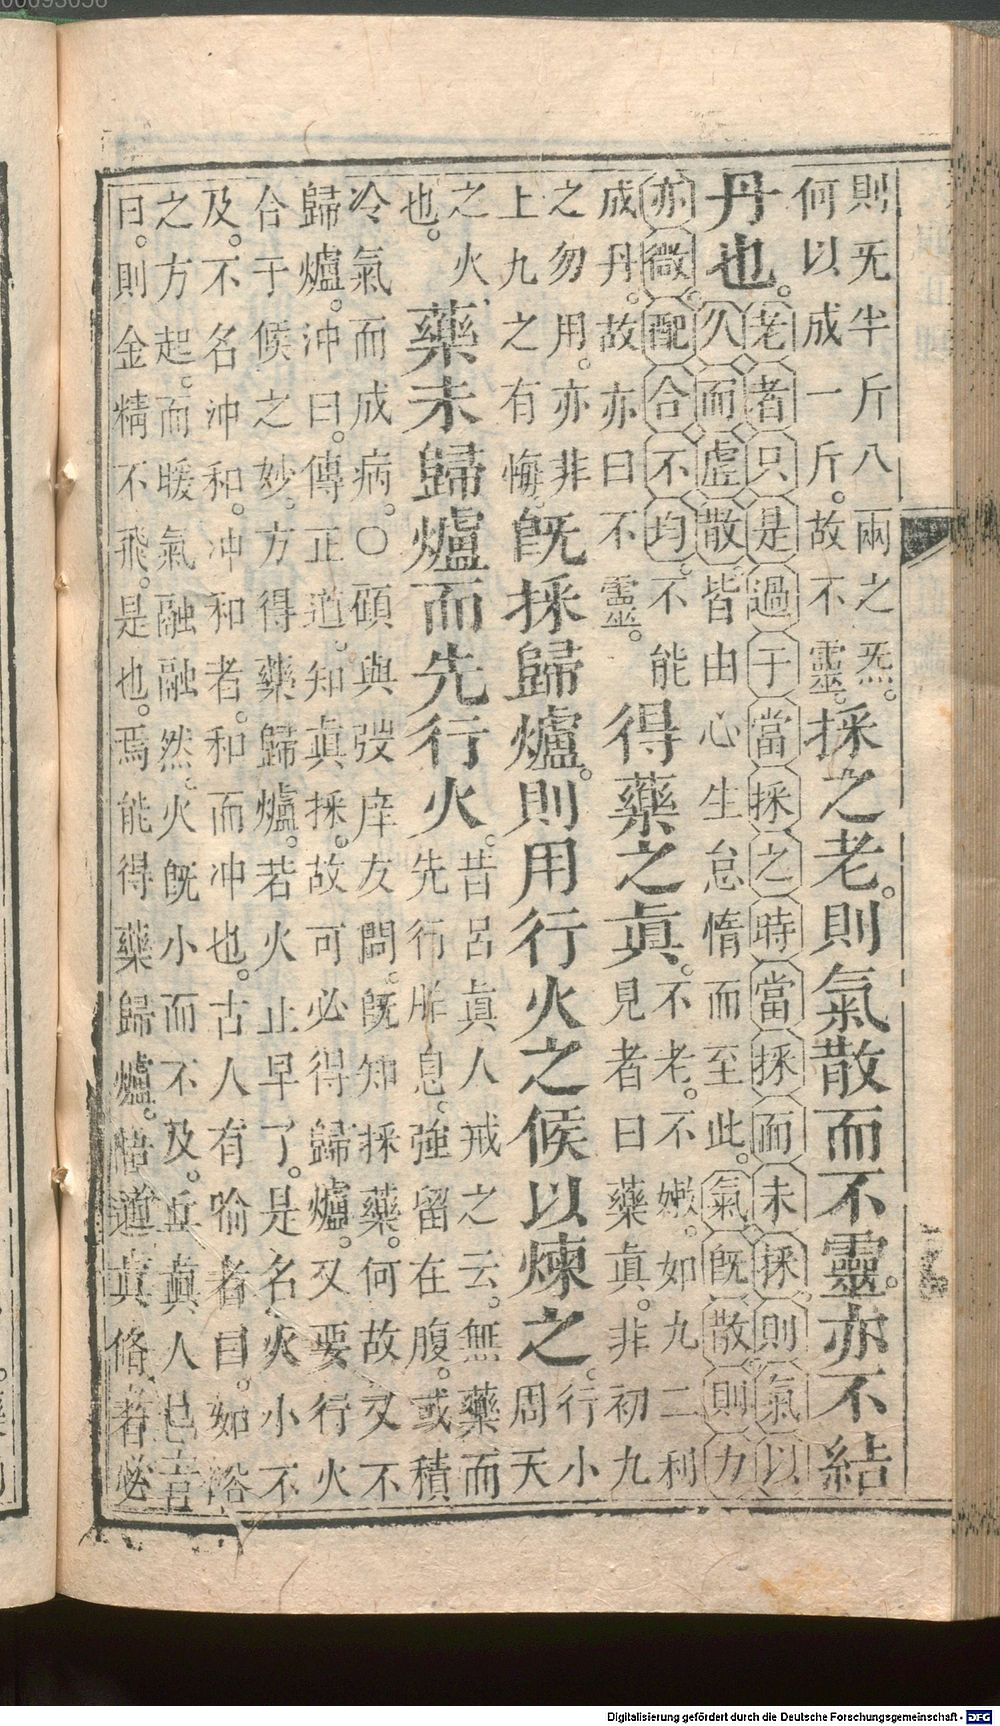 則旡半斤八兩之炁。
何以成一斤。故不靈。
採之老。則氣散而不靈。亦不結
丹也。
老者只是過于當採之時當採而未採則氣以
久而虛散皆由心生怠惰而至此。氣既散則力
亦微配合不均。不能
成丹。故亦曰不靈。
得藥之眞。
不老。不嫩。如九二利
見者曰藥眞。非初九
之勿用。亦非
上九之有悔。
既採歸爐。則用行火之候以煉之。
行小
周天
之火
也。
藥未歸爐而先行火。
昔呂眞人戒之云。無藥而
先行胎息。強留在腹。或積
冷氣而成病。〇顧與弢庠友問。既知採藥。何故又不
歸爐。冲曰。傳正道。知眞採。故可必得歸爐。又要行火
合于候之妙。方得藥歸爐。若火止早了。是名火小不
及。不名冲和。冲和者。和而冲也。古人有喻者曰。如浴
之方起。而暖氣融融然。火既小而不及。丘眞人已言
曰。則金精不飛。是也。焉能得藥歸爐。悟道眞修者必
Digitalisierung gefördert durch die Deutsche Forschungsgemeinschaft - DFG